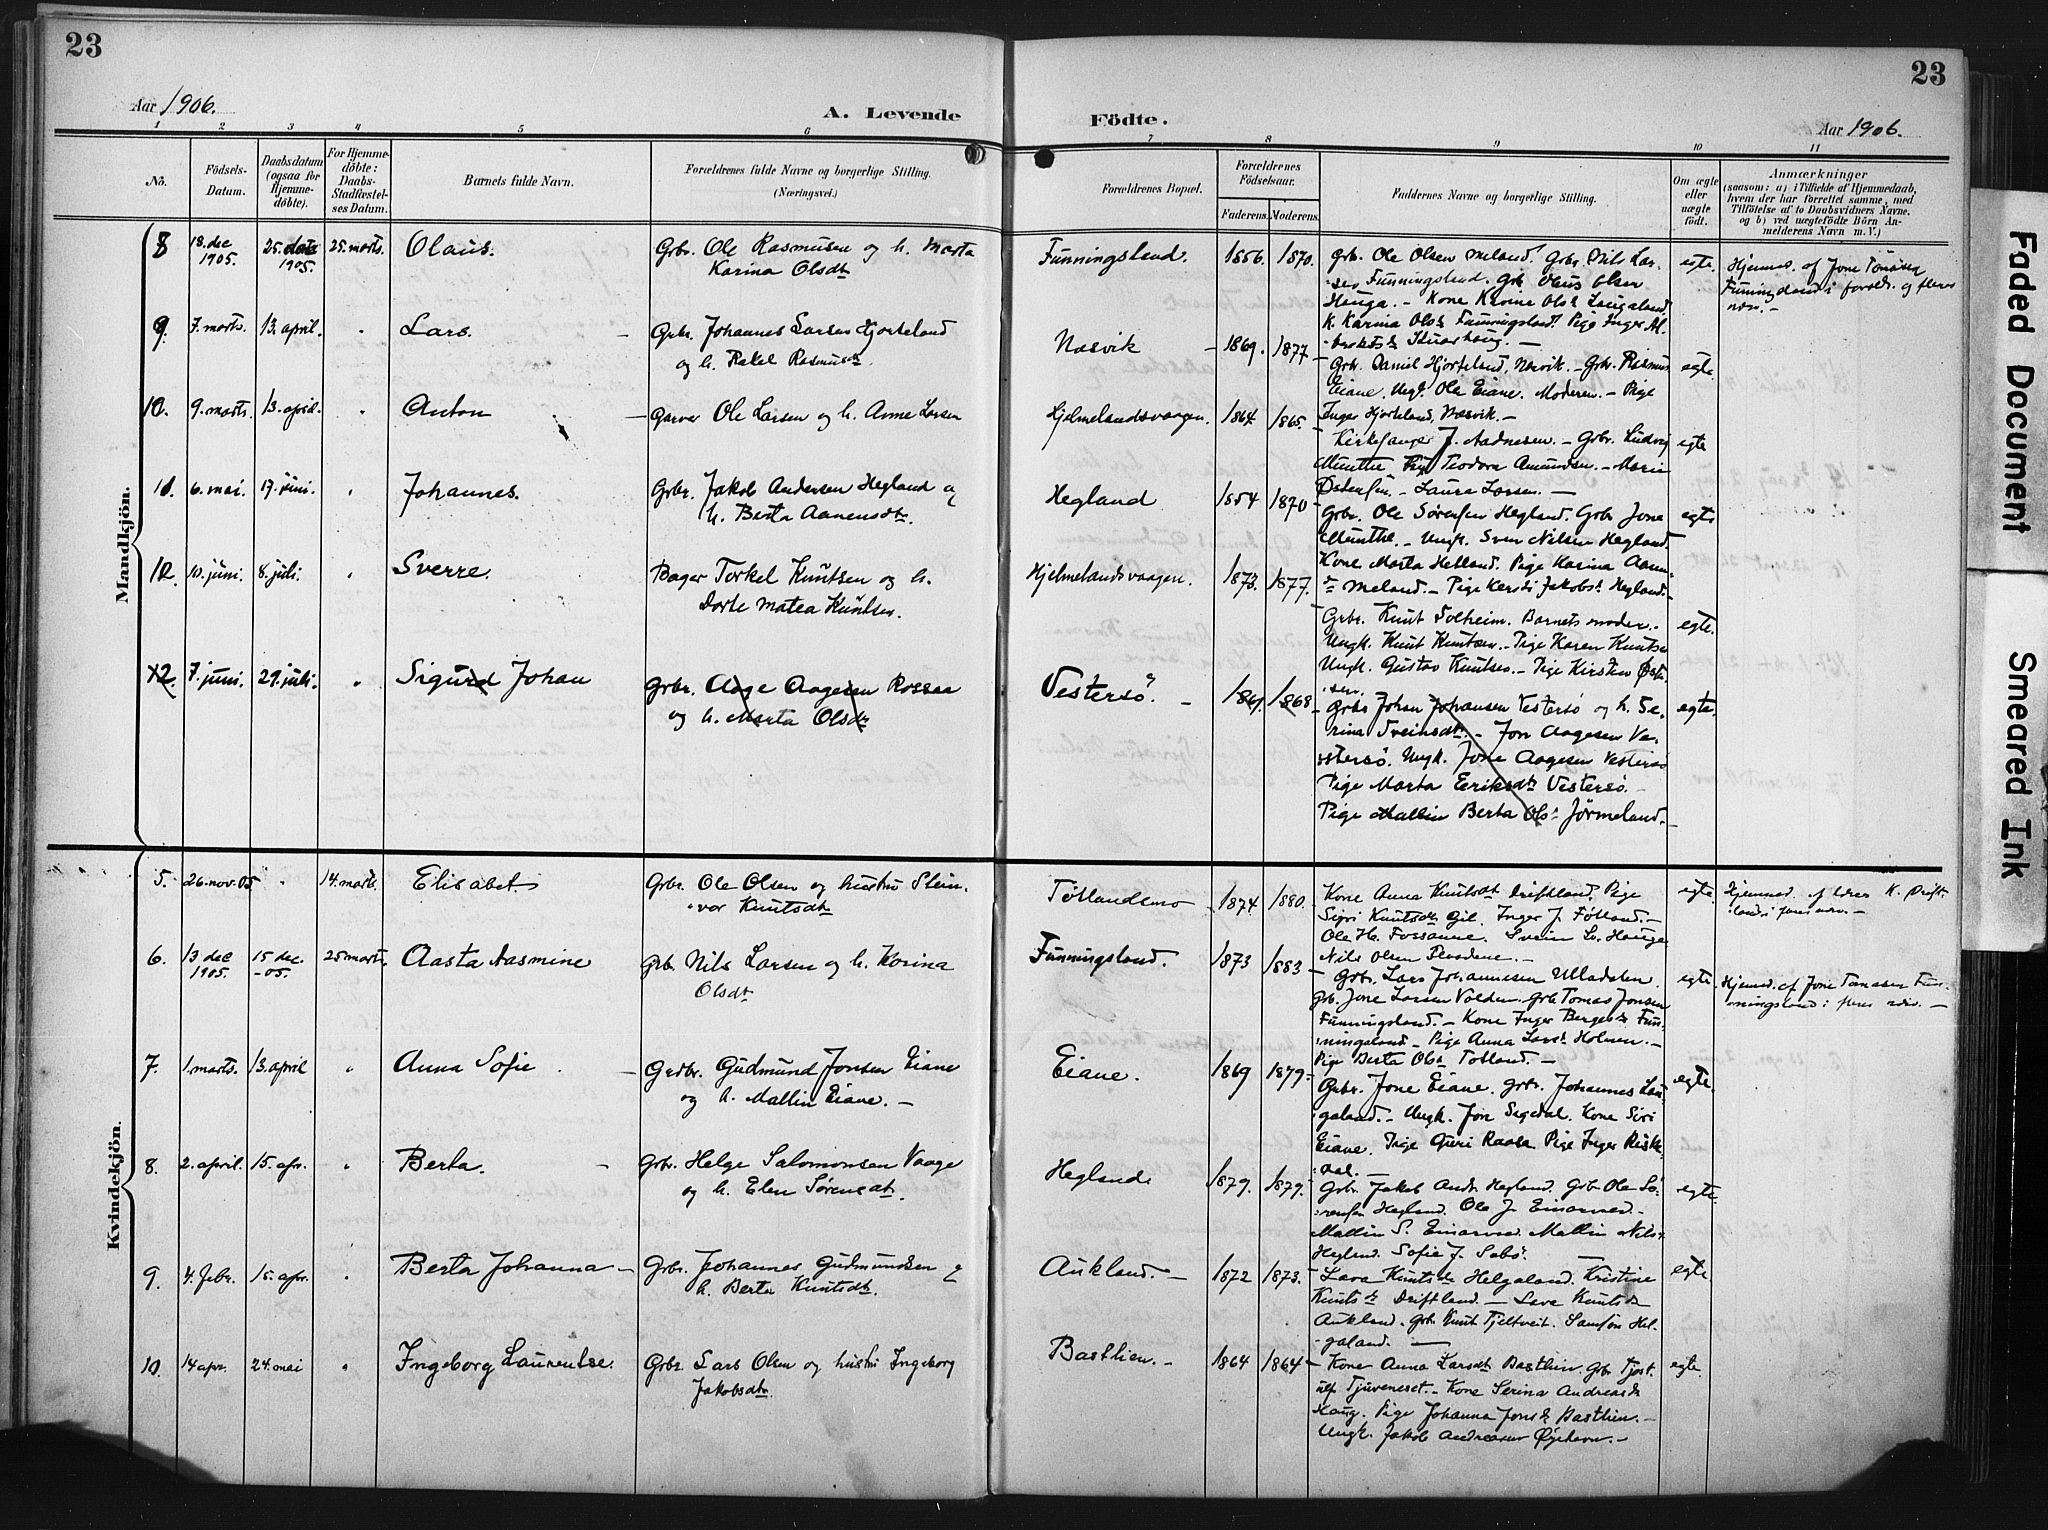 23
23
Aar 1906.
A. Levende
Födte.
Aar 1906.
1 2 3 4 5 6 7 8 9 10 11
No.
Födsels-
Datum.
Daabsdatum
(ogsaa for
Hjemme-
döbte).
For Hjemme-
döbte:
Daabs-
Stadfæstel-
ses Datum.
Barnets fulde Navn.
Forældrenes fulde Navne og borgerlige Stilling.
(Næringsvei.)
Forældrenes Bopæl.
Forældrenes
Födselsaar.
Faderens. Moderens.
Faddernes Navne og borgerlige Stilling.
Om ægte
eller
uægte
födt.
Anmærkninger
(saasom: a) i Tilfælde af Hjemmedaab,
hvem der har forrettet samme, med
Tilföielse af to Daabsvidners Navne.
og b) ved uægtefödte Börn An-
melderens Navn m. V.)
Mandkjön.
8
18. dec
1905.
25. dec
1905.
25. marts.
Olaus.
Grbr. Ole Rasmusen og h. Marta
Karina Olsdt
Funningsland.
1856. 1870.
Grbr. Ole Olsen Meland. Grbr. Nils Lar-
sen Funningsland. Grb Olaus Olsen
Hauga. – Kone Karine Olsd. Laugaland.
K. Karina Olsd. Funningsland. Pige Inger Al-
egte.
Hjemmed. af Jone Tomasen
Funningsland i foræld. og fleres
nærv. –
9.
7. marts.
13. april.
"
Lars. –
Grbr. Johannes Larsen Hjorteland
og h. Rakel Rasmusdt.
Næsvik –
1869. 1877 –
Grbr. Daniel Hjorteland, Næsvik. – Grbr. Rasmus
Eiane. Ungk. Ole Eiane. Moderen. – Pige
Inger Hjorteland, Næsvik. –
egte.
10.
9. marts.
13. april.
"
Anton –
Garver Ole Larsen og h. Anne Larsen
Hjelmelandsvaagen.
1864. 1865.
Kirkesanger J. Aadnesen. – Grbr. Ludvig
Munthe. Teodora Amundsen. – Marie
Østensen. – Laura Larsen. –
egte
11.
6. mai.
17. juni.
"
Johannes.
Grbr. Jakob Andersen Hegland og
h. Berta Aanensdt.
Hegland
1854 1870
Grbr. Ole Sørensen Hegland. Grbr Jone
Munthe. – Ungk. Sven Nilsen Hegland.
Kone Marta Hetland. Pige Karina Aanen-
dt. Meland. – Pige Kersti Jakobsd. Hegland. –
egte
12.
10. juni.
8. juli.
"
Sverre.
Bager Torkel Knutsen og h.
Dorte Matea Knutsen.
Hjelmelandsvaagen.
1873. 1877.
Grbr. Knut Solheim. Barnets moder. –
Ungk. Knut Knutsen. – Pige Karen Knutsen
Ungk. Gustav Knutsen – Pige Kirsten Øst-
ensen.
egte.
12.
7. juni.
29. juli.
"
Sigurd Johan
Grbr. Aage Aagesen Rossaa
og h. Marta Olsdt
Vestersø. –
1869. 1868 –
Grbr Johan Johansen Vestersø og h. Se-
rina Sveinsdt. – Jon Aagesen Ve-
stersø. Ungk. Jone Aagesen Vestersø
Pige Marta Eeriksdt Vestersø. –
Pige Mallin Berta Olsd. Jørmeland. –
egte.
Kvindekjön.
5.
26. nov. 05
"
14. marts.
Elisabet
Grbr. Ole Olsen og hustru Stein-
vor Knutsdt
Tøtlandsmo –
1874 1880.
Kone Anna Knutsdt Driftland. Pige
Siri Knutsdt. Gil. Inger J. Føtland. –
Ole H. Fossanne. Svein Hauge
Nils Olsen –
egte.
Hjemmed. af lærer K. Drift-
land i fleres nærv. –
6.
13 dec
1905.
15 dec.
–05.
25 marts.
Aasta Aasmine
Grb. Nils Larsen og h. Korina
Olsdt
Funningsland.
1873 1883 –
Grbr. Lars Johannesen Ulladalen.
Grb. Jone Larsen Volden. Grb Tomas Jonsen
Funningsland. – Kone Inger Bergesd. Fun-
ningsland – Pige Anna Larsd. Holmen. –
Pige Berta Olsd. Totland. –
egte.
Hjemmed. af Jone Tomasen Fun-
ningsland i fleres nærv. –
7.
1. marts.
13. april
"
Anna Sofie –
Grdbr. Gudmund Jonsen Eiane
og h. Mallin Eiane. –
Eiane.
1869 1879 –
Grbr. Jone Eiane. Grbr. Johannes Lau-
galand. – Ungk. Jon Segedal. Kone Siri
Eiane. Pige Guri Raasa Pige Inger Risk-
dal. –
egte.
8.
2. april.
15. apr.
"
Berta. –
Grbr. Helge Salomonsen Vaage
og h. Elen Sørensdt.
Heglands
1879. 1879.
Grbr. Jakob Andr. Hegland. Grbr Ole Sø-
rensen Hegland. Ole J. Einarned. –
Mallin S. Einarned. Mallin Nilsd.
Hegland. Sofie J. Sabø.
egte.
9
4. febr.
15. apr.
"
Berta Johanna –
Grbr. Johannes Gudmundsen og
h. Berta Knutsdt.
Aukland. –
1872 1873. –
Lava Knutsd. Helgaland. Kristine
Knutsd. Driftland. – Lava Knutsd.
Aukland. Grb. Knut Tjeltveit. Samson Hel-
galand. –
egte.
10.
14 apr.
24. mai
"
Ingeborg Laurentse.
Grbr. Lars Olsen og hustru Ingeborg
Jakobsdt.
Basthien. –
1864 1864 –
Kone Anna Larsdt Basthien. Grb. Tjost-
ulf Tjuveneset. – Kone Serina Andreasd.
Haug. Pige Johanna Jonsd. Basthien. –
Ungk. Jakob Andreasen Øiehavn. –
egte.
Faded Document
Smeared Ink